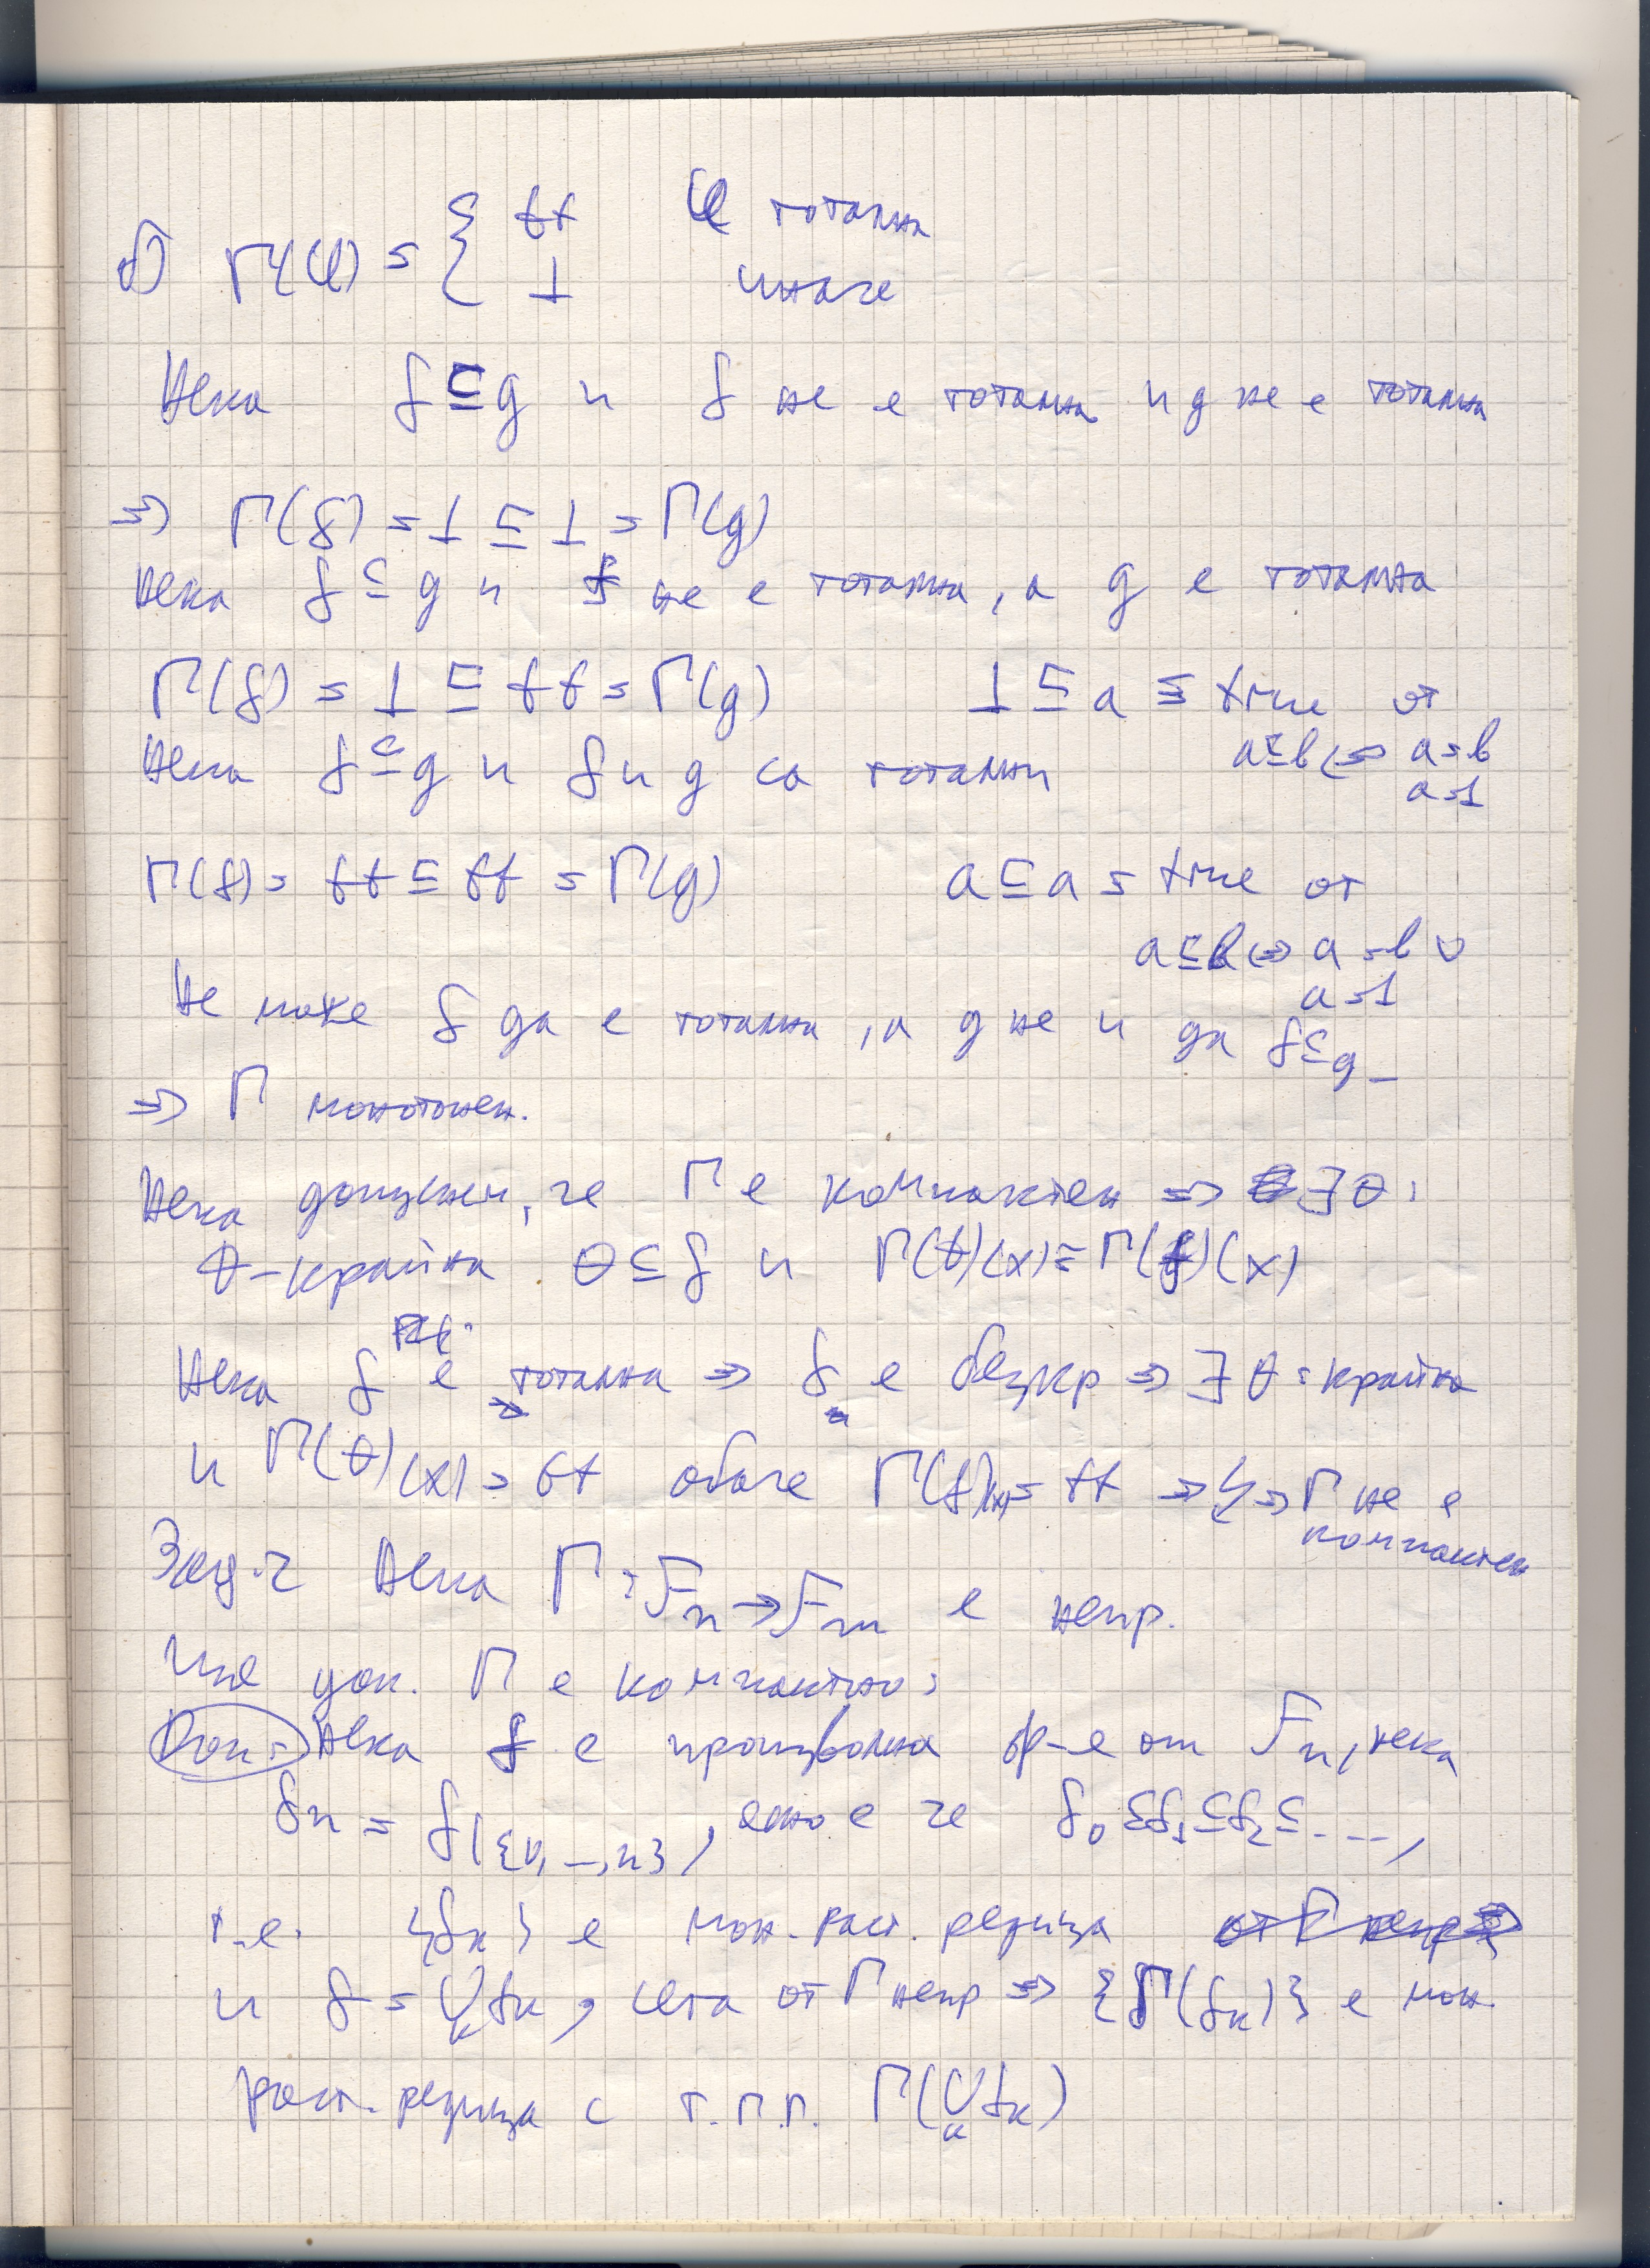 б) Γ(φ) = { tt φ тотална
⊥ иначе
Нека f ⊆ g и f не е тотална и g не е тотална
⇒ Γ(f) = ⊥ ⊑ ⊥ = Γ(g)
Нека f ⊆ g и f не е тотална, а g е тотална
Γ(f) = ⊥ ⊑ tt = Γ(g) ⊥ ⊑ a = true от
a⊑b ⇔ a=b
a=⊥
Нека f ⊆ g и f и g са тотални
Γ(f) = tt ⊑ tt = Γ(g) a ⊑ a = true от
a⊑b ⇔ a=b ∨
a=⊥
Не може f да е тотална, а g не и да f⊆g
⇒ Γ монотонен.
Нека допуснем, че Γ е компактен ⇒ ∃θ:
θ-крайна θ ⊆ f и Γ(θ)(x) = Γ(f)(x)
Нека f е тотална ⇒ f е безкр ⇒ ∃ θ: крайна
и Γ(θ)(x) = tt обаче Γ(f)(x) = tt → ↯ ⇒ Γ не е
компактен
Зад. 2 Нека Γ: Fn → Fm е непр.
Ще док. Γ е компактно:
Док: Нека f е произволна ф-я от Fn, нека
fn = f|{0, ..., n}, ясно е че f0 ⊆ f1 ⊆ f2 ⊆ ...,
т.е. {fk} е мон. раст. редица
и f = ∪k fk, сега от Γ непр ⇒ {Γ(fk)} е мон.
раст. редица с т.г.г. Γ(∪k fk)